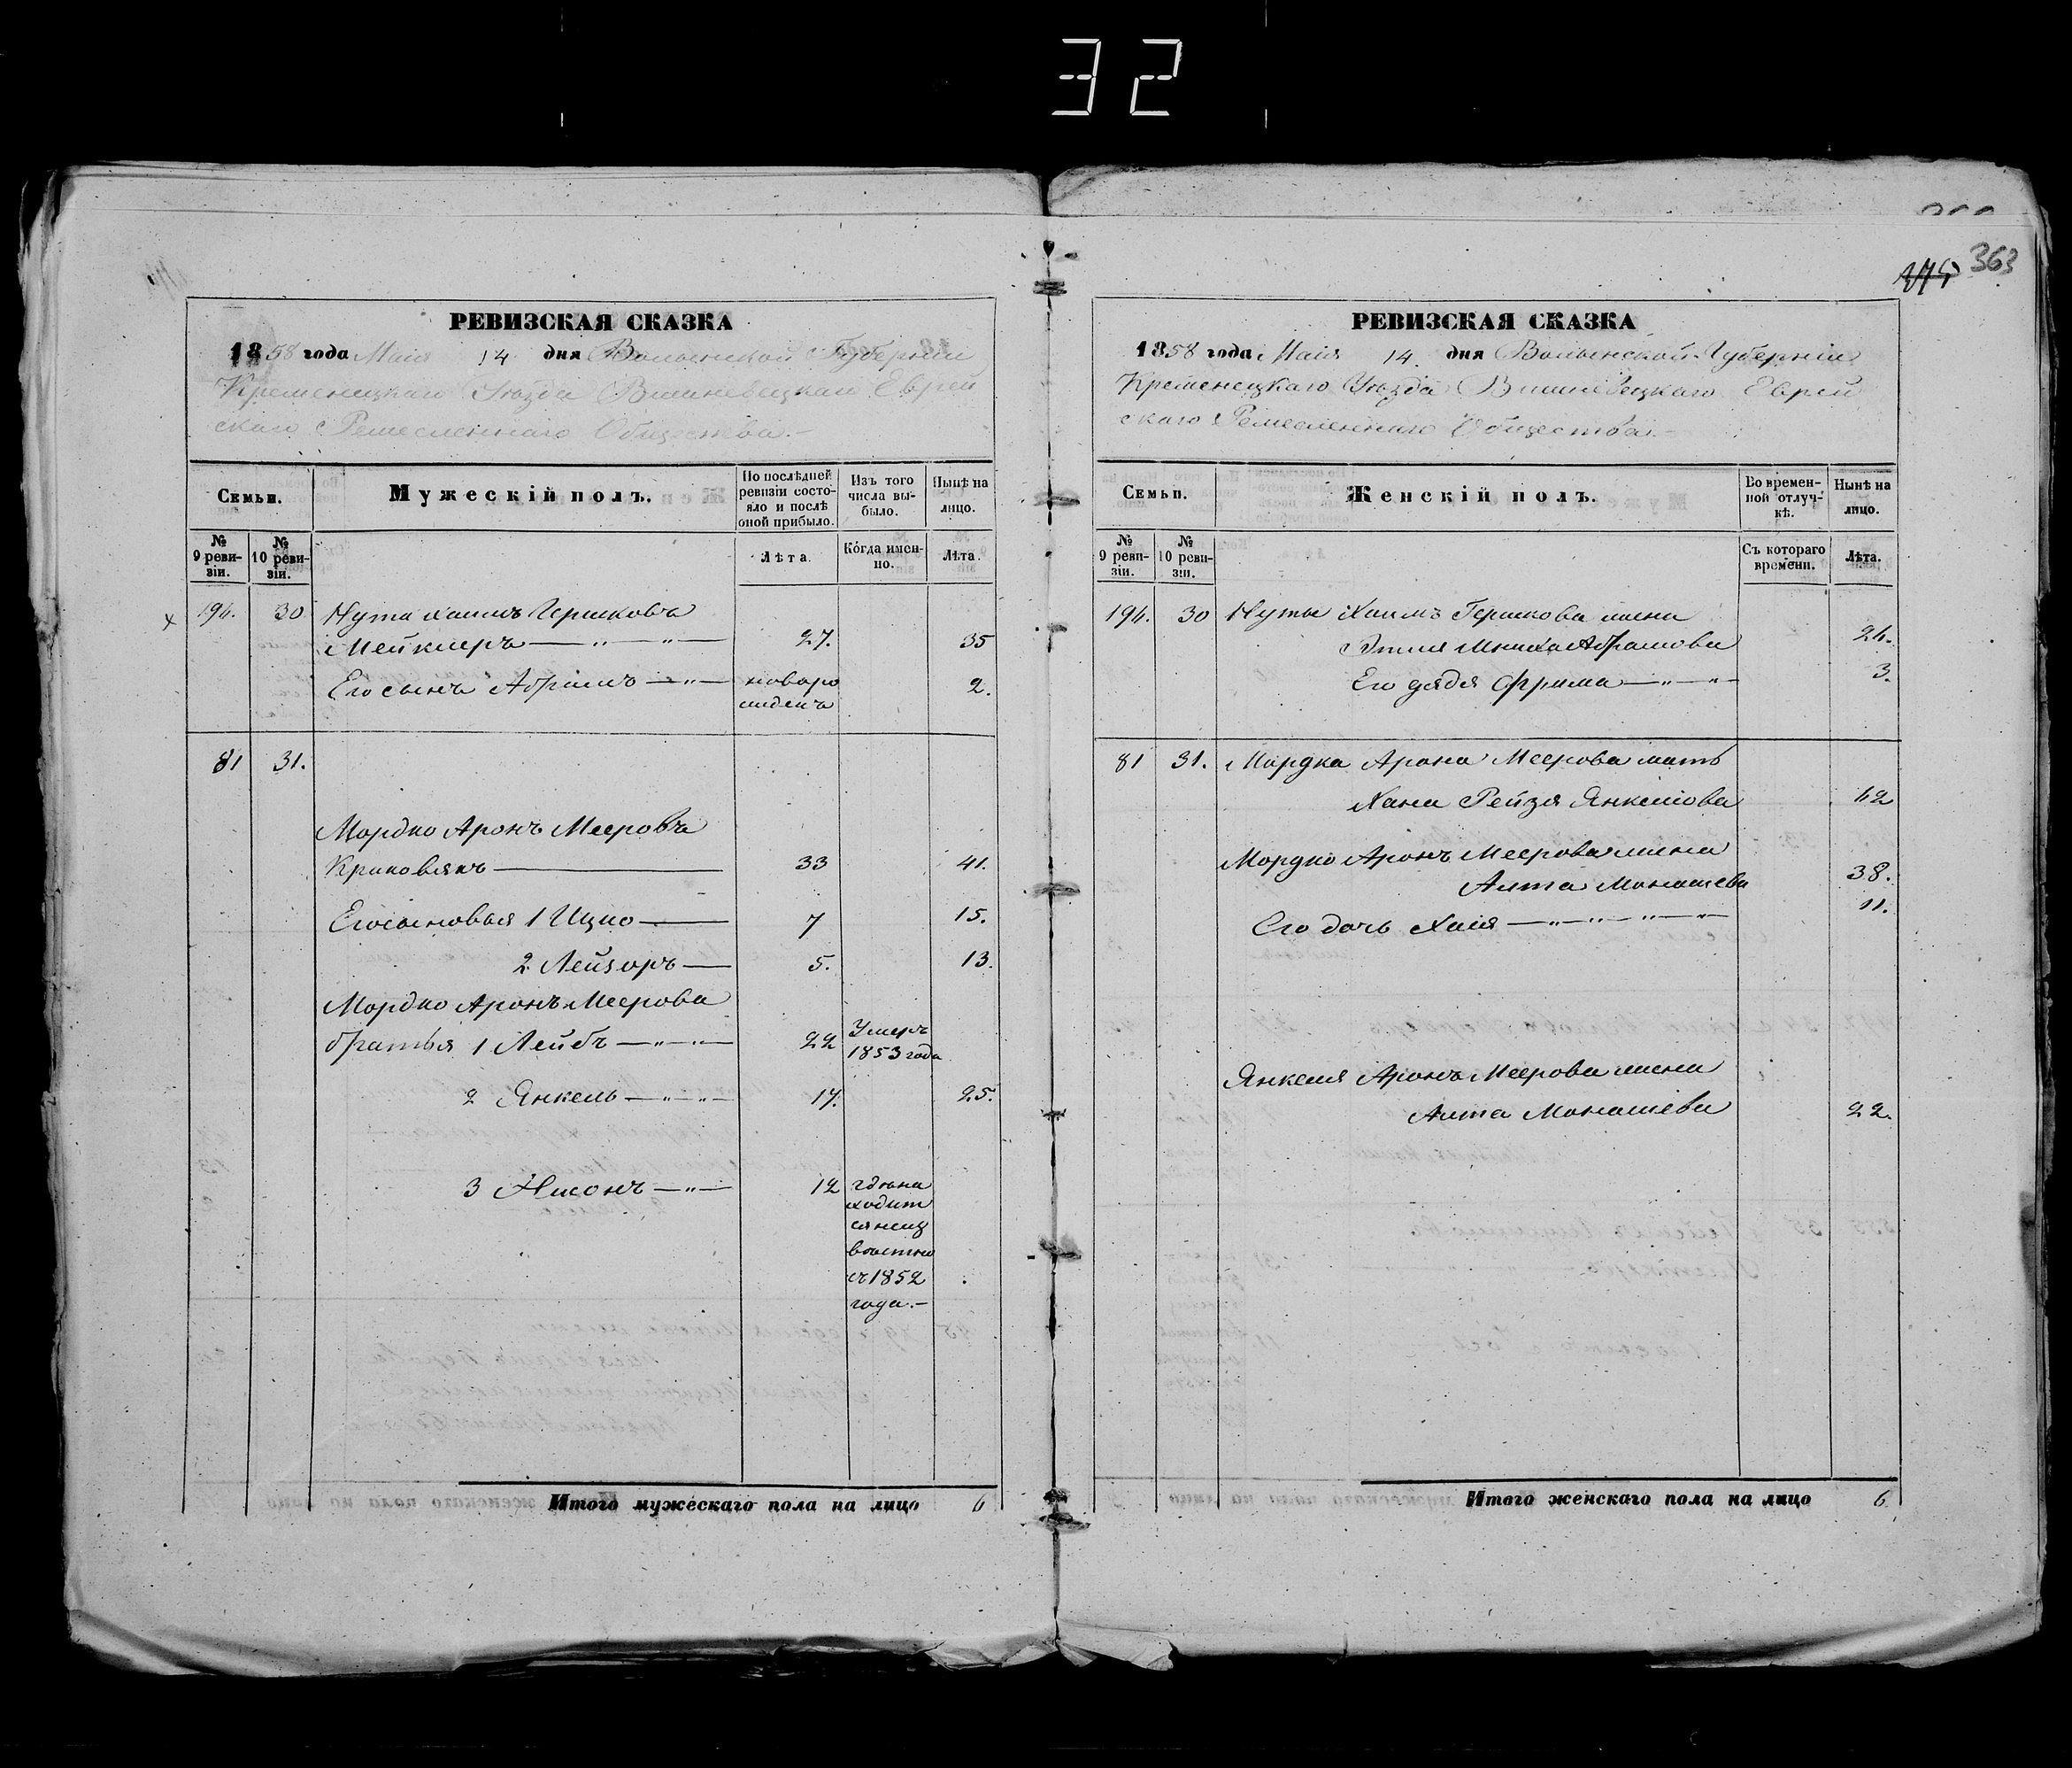 32
363
РЕВИЗСКАЯ СКАЗКА
1858 года Маія 14 дня Волынской Губерніи
Кременецкаго Уѣзда Вишневецкаго Еврей
скаго Ремесленнаго Общества.
Семьи.
Мужескій полъ.
По послѣдней ревизіи состояло и послѣ оной прибыло.
Изъ того числа выбыло.
Нынѣ на лицо.
№ 9 ревизіи.
№ 10 ревизіи.
Лѣта.
Когда именно.
Лѣта.
194. 30 Нута Хаимъ Гершковъ
Мейклеръ 27. 35
Его сынъ Абрамъ новоро 2.
жденъ
81 31.
Мордко Аронъ Мееровъ
Краковякъ 33 41.
Его сыновья 1 Ицко 7 15.
2. Лейзоръ 5. 13.
Мордко Аронъ Меерова
братья 1 Лейбъ 22 Умеръ
1853 года
2 Янкель 17. 25.
3 Нисонъ 12 гдѣ на
ходит
ся неиз
вѣстно
съ 1852
года.
Итого мужескаго пола на лицо 6
РЕВИЗСКАЯ СКАЗКА
1858 года Маія 14. дня Волынской Губерніи
Кременецкаго Уѣзда Вишневецкаго Еврей
скаго Ремесленнаго Общества.
Семьи.
Женскій полъ.
Во временной отлучкѣ.
Нынѣ на лицо.
№ 9 ревизіи.
№ 10 ревизіи.
Съ котораго времени.
Лѣта.
194. 30 Нуты Хаимъ Гершкова жена
Абрамова 24.
Его Фрима 3.
81 31. Мордка Арона Меерова мать
Хана Рейзя Янкелова 62
Мордко Аронъ Меерова жена
Алта Моношева 38.
Его дочь Хая 11.
Янкеля Аронъ Меерова жена
Алта Моношева 22.
Итого женскаго пола на лицо 6